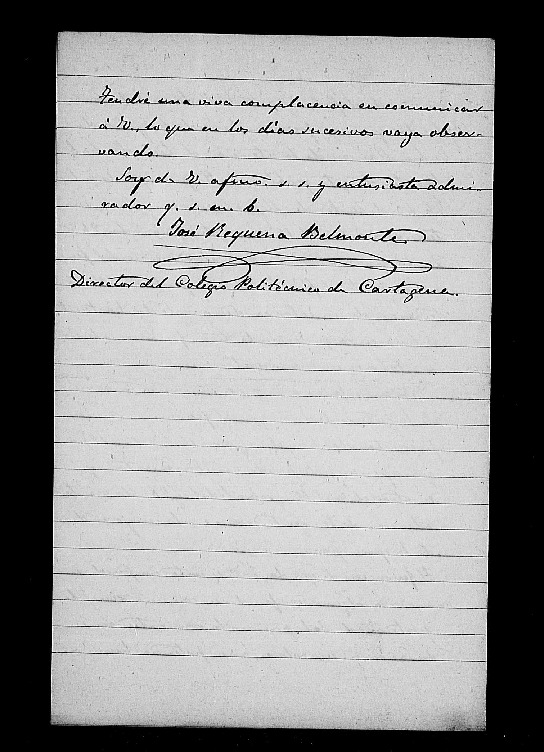 Tendré una viva complacencia en comunicar
á V., lo que en los días sucesivos vaya obser-
vando.
Soy de V. afmo. s. s. y entusiasta admi-
rador q. s. m. b.
José Requena Belmonte
Director del Colegio Politécnico de Cartagena.